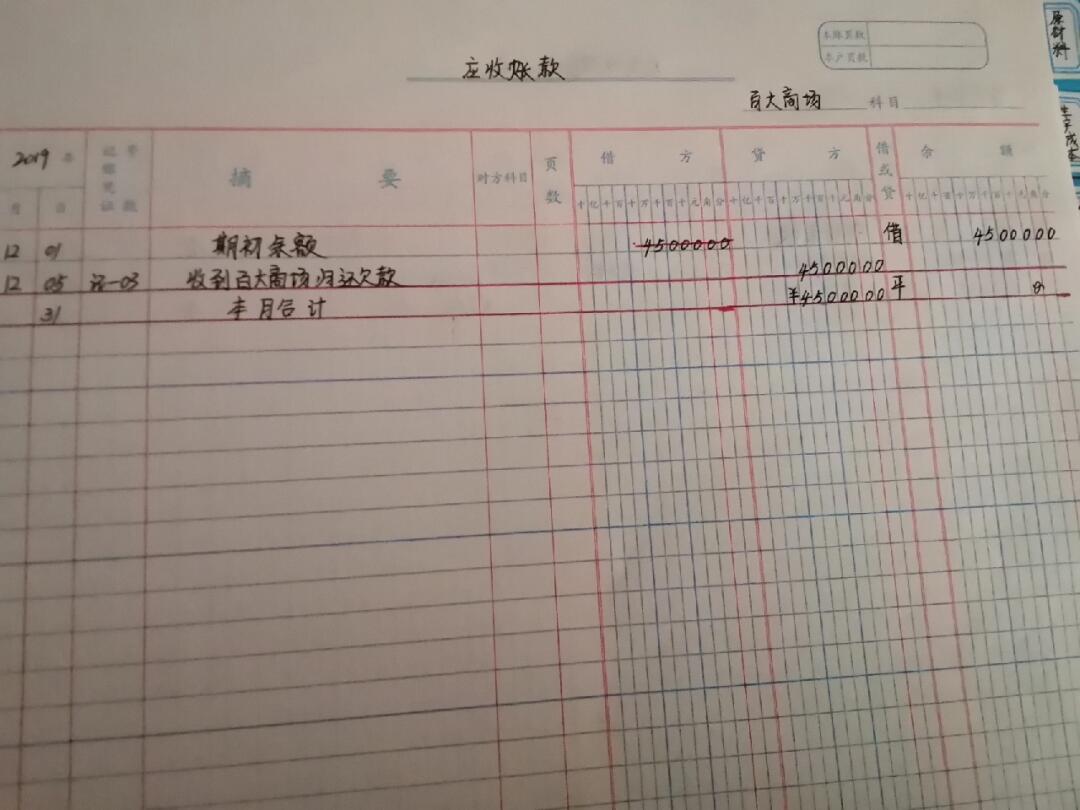 原材料
本账页数
本户页数
应收账款
百大商场 科目
生产成本
2019 年 记账凭证 号数 摘 要 对方科目 页数 借 方 贷 方 借或贷 余 额
月 日 十亿千百十万千百十元角分 十亿千百十万千百十元角分 十亿千百十万千百十元角分
12 01 期初余额 4500000 借 4500000
12 05 记-03 收到百大商场归还欠款 4500000
31 本月合计 ¥4500000 平 0